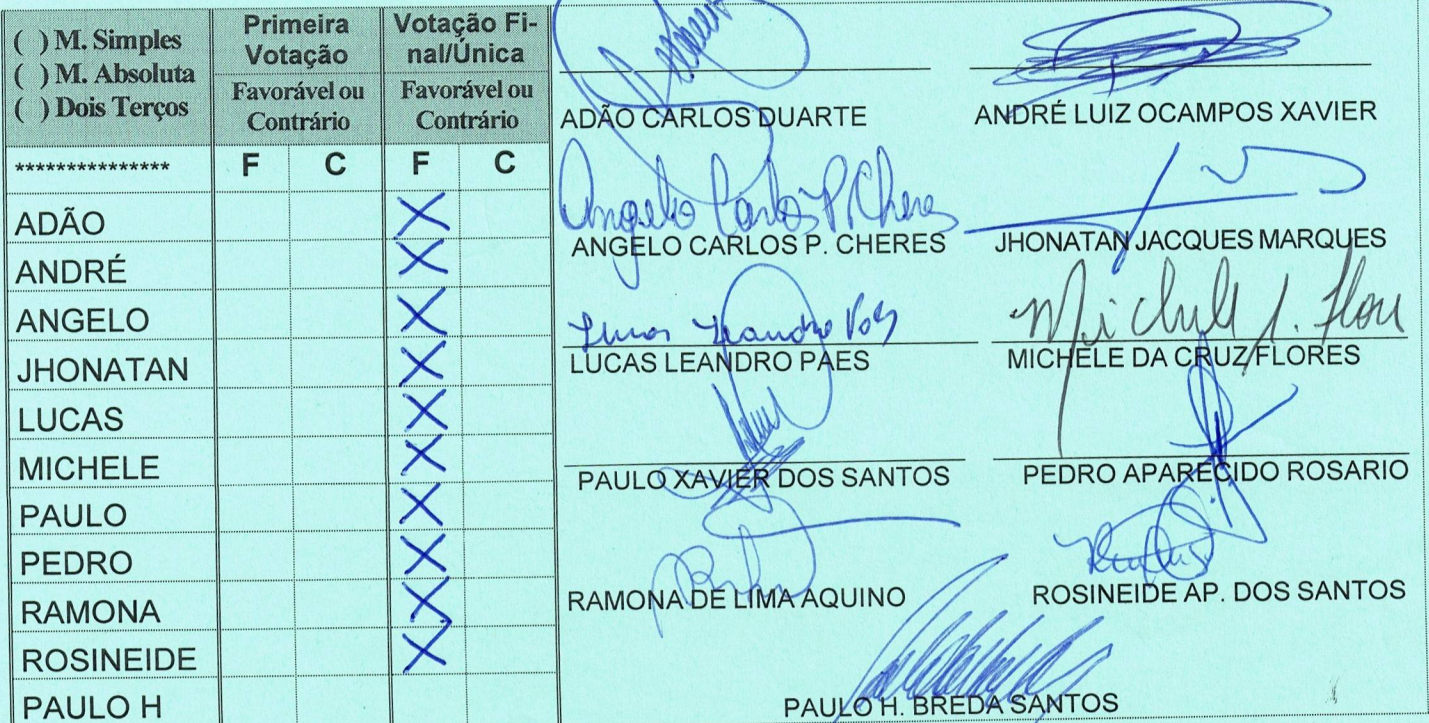 ( ) M. Simples
( ) M. Absoluta
( ) Dois Terços
Primeira
Votação
Favorável ou
Contrário
Votação Fi-
nal/Única
Favorável ou
Contrário
*************** F C F C
ADÃO X
ANDRÉ X
ANGELO X
JHONATAN X
LUCAS X
MICHELE X
PAULO X
PEDRO X
RAMONA X
ROSINEIDE X
PAULO H
ADÃO CARLOS DUARTE
ANDRÉ LUIZ OCAMPOS XAVIER
Angelo Carlos P. Cheres
ANGELO CARLOS P. CHERES
JHONATAN JACQUES MARQUES
LUCAS LEANDRO PAES
MICHELE DA CRUZ FLORES
PAULO XAVIER DOS SANTOS
PEDRO APARECIDO ROSARIO
RAMONA DE LIMA AQUINO
ROSINEIDE AP. DOS SANTOS
PAULO H. BREDA SANTOS